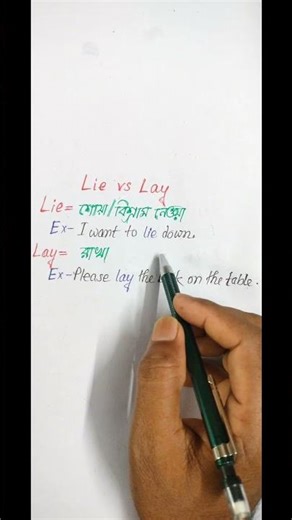 Lie vs Lay
Lie= শোয়া/বিশ্রাম নেওয়া
Ex- I want to lie down.
Lay= রাখা
Ex- Please lay the on the table.